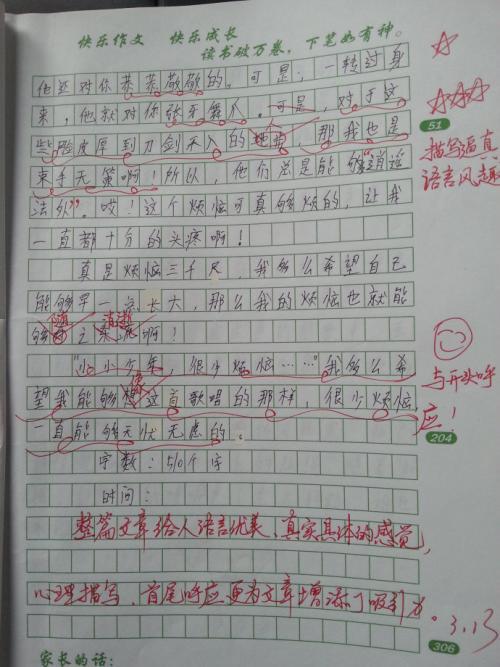 快乐作文 快乐成长
读书破万卷，下笔如有神。
他还对你恭恭敬敬的。可是，一转过身
来，他就对你张牙舞爪。可是，对于这
些脸皮厚到刀剑不入的
，那我也是
束手无策啊！所以，他们总是能够“逍遥
法外”。哎！这个烦恼可真够烦的，让我
一直都十分的头疼啊！
真是烦恼三千尺，我多么希望自己
能够早一点长大，那么我的烦恼也就能
够随之消逝啊！
“小小少年，很少烦恼……”我多么希
望我能够像这首歌唱的那样，很少烦恼，
一直能够无忧无虑的。
字数：510个字
时间：
整篇文章给人语言优美、真实具体的感觉，
心理描写、首尾呼应更为文章增添了吸引力。3.13
51
描写逼真
语言风趣
与开头呼
应！
204
306
家长的话：